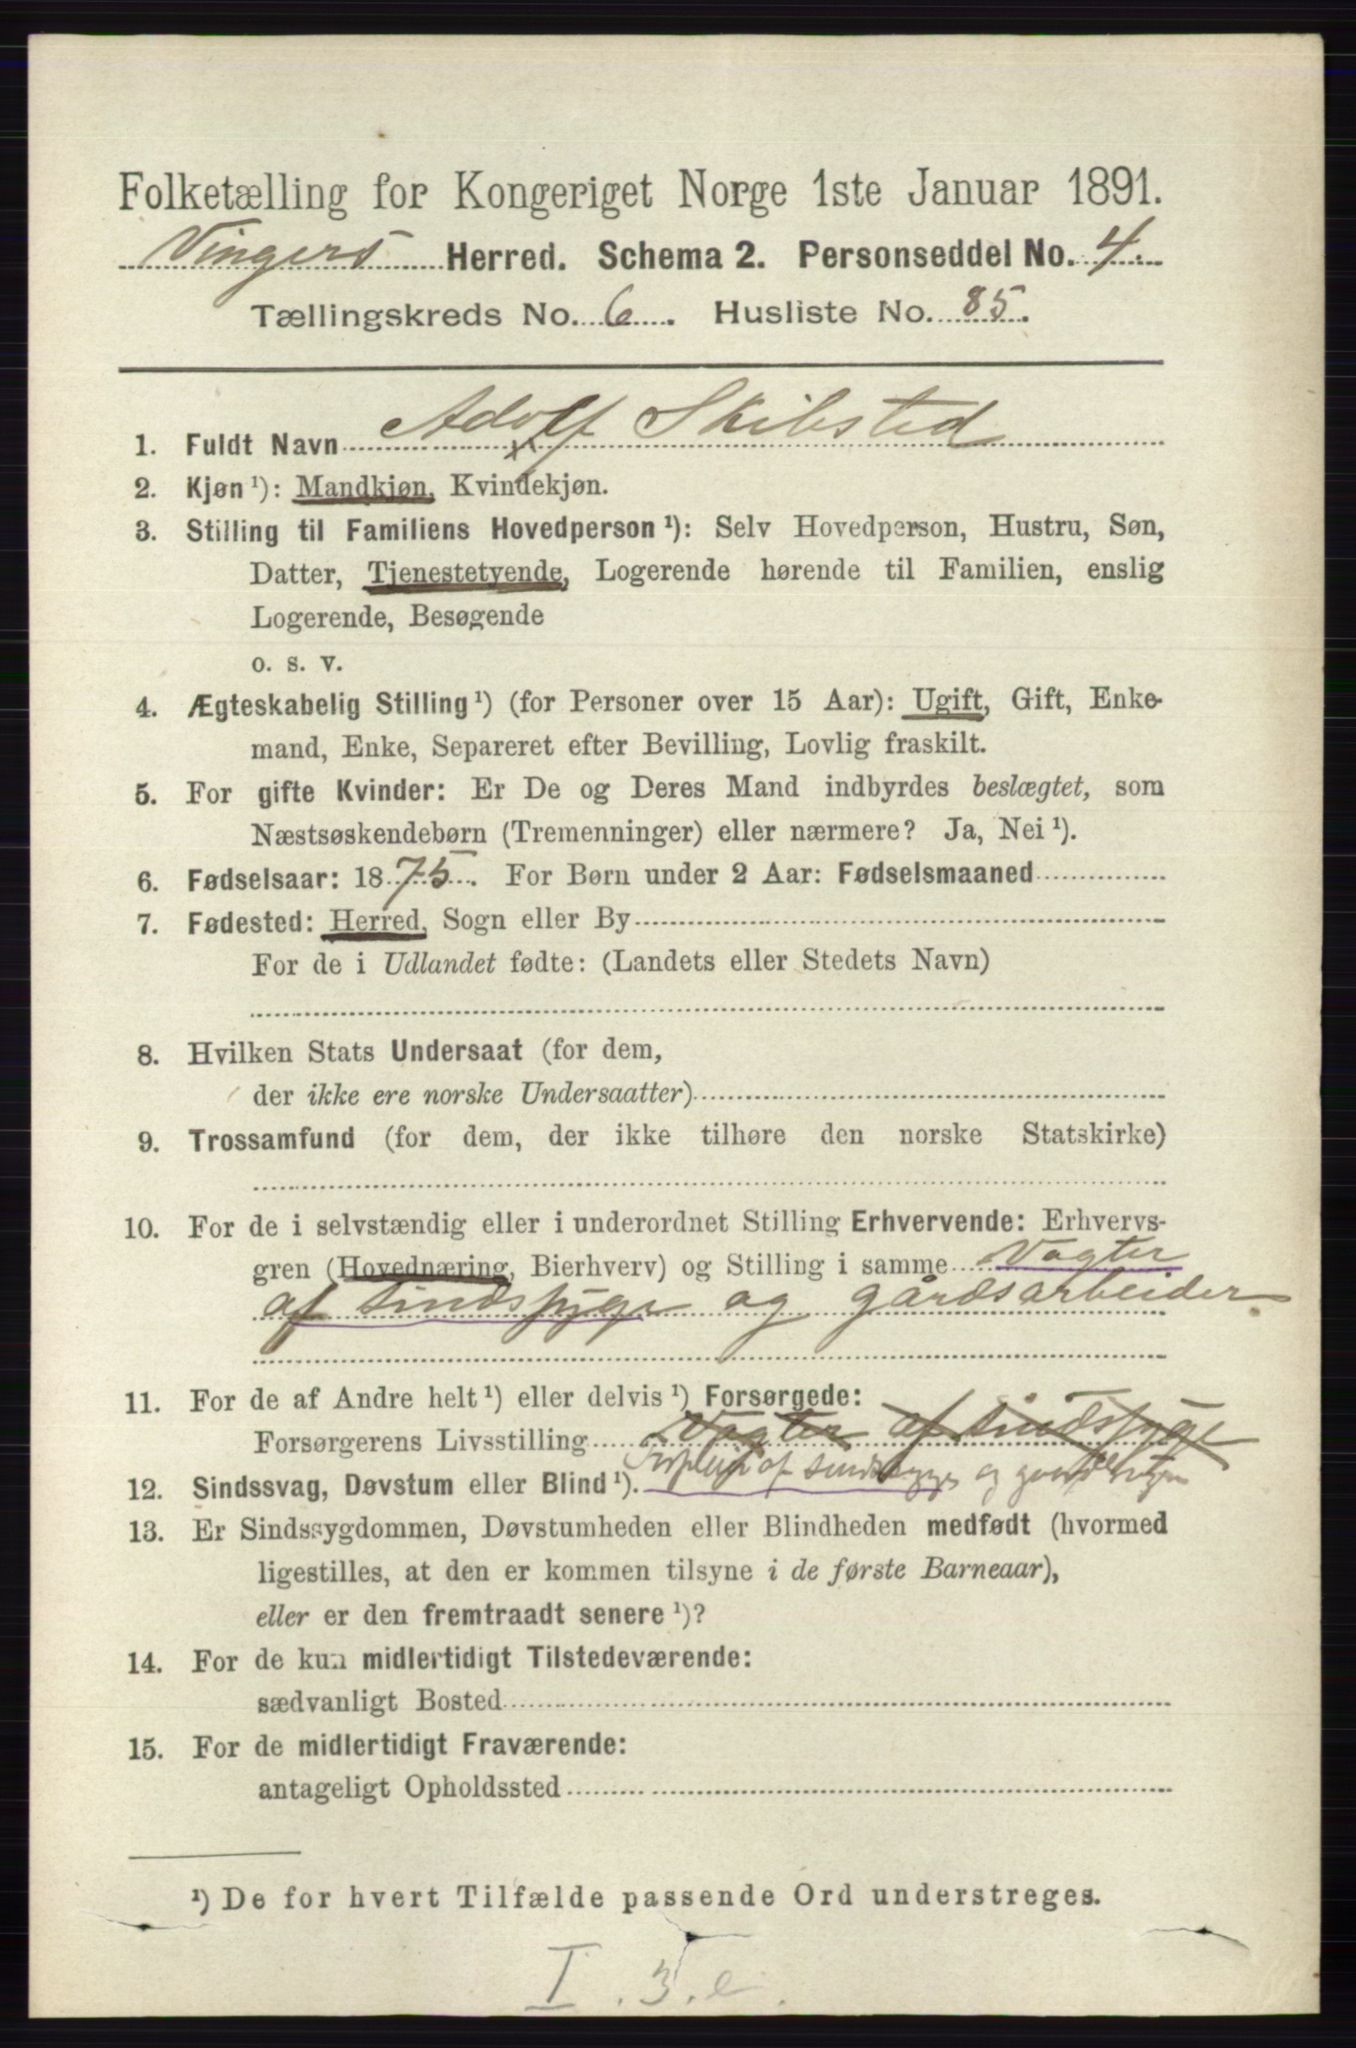 Folketælling for Kongeriget Norge 1ste Januar 1891.
Vingers Herred. Schema 2. Personseddel No. 4.
Tællingskreds No. 6. Husliste No. 85.
1. Fuldt Navn Adolf Skibsted
2. Kjøn ¹): Mandkjøn, Kvindekjøn.
3. Stilling til Familiens Hovedperson ¹): Selv Hovedperson, Hustru, Søn,
Datter, Tjenestetyende, Logerende hørende til Familien, enslig
Logerende, Besøgende
o. s. v.
4. Ægteskabelig Stilling ¹) (for Personer over 15 Aar): Ugift, Gift, Enke-
mand, Enke, Separeret efter Bevilling, Lovlig fraskilt.
5. For gifte Kvinder: Er De og Deres Mand indbyrdes beslægtet, som
Næstsøskendebørn (Tremenninger) eller nærmere? Ja, Nei ¹).
6. Fødselsaar: 1875. For Børn under 2 Aar: Fødselsmaaned
7. Fødested: Herred, Sogn eller By
For de i Udlandet fødte: (Landets eller Stedets Navn)
8. Hvilken Stats Undersaat (for dem,
der ikke ere norske Undersaatter)
9. Trossamfund (for dem, der ikke tilhøre den norske Statskirke)
10. For de i selvstændig eller i underordnet Stilling Erhvervende: Erhvervs-
gren (Hovednæring, Bierhverv) og Stilling i samme Vagter
af sindssyge og gårdsarbeider.
11. For de af Andre helt ¹) eller delvis ¹) Forsørgede:
Forsørgerens Livsstilling Vagter af sindssyge
12. Sindssvag, Døvstum eller Blind ¹). af sindssyge og
13. Er Sindssygdommen, Døvstumheden eller Blindheden medfødt (hvormed
ligestilles, at den er kommen tilsyne i de første Barneaar),
eller er den fremtraadt senere ¹)?
14. For de kun midlertidigt Tilstedeværende:
sædvanligt Bosted
15. For de midlertidigt Fraværende:
antageligt Opholdssted
¹) De for hvert Tilfælde passende Ord understreges.
I. 3. e.